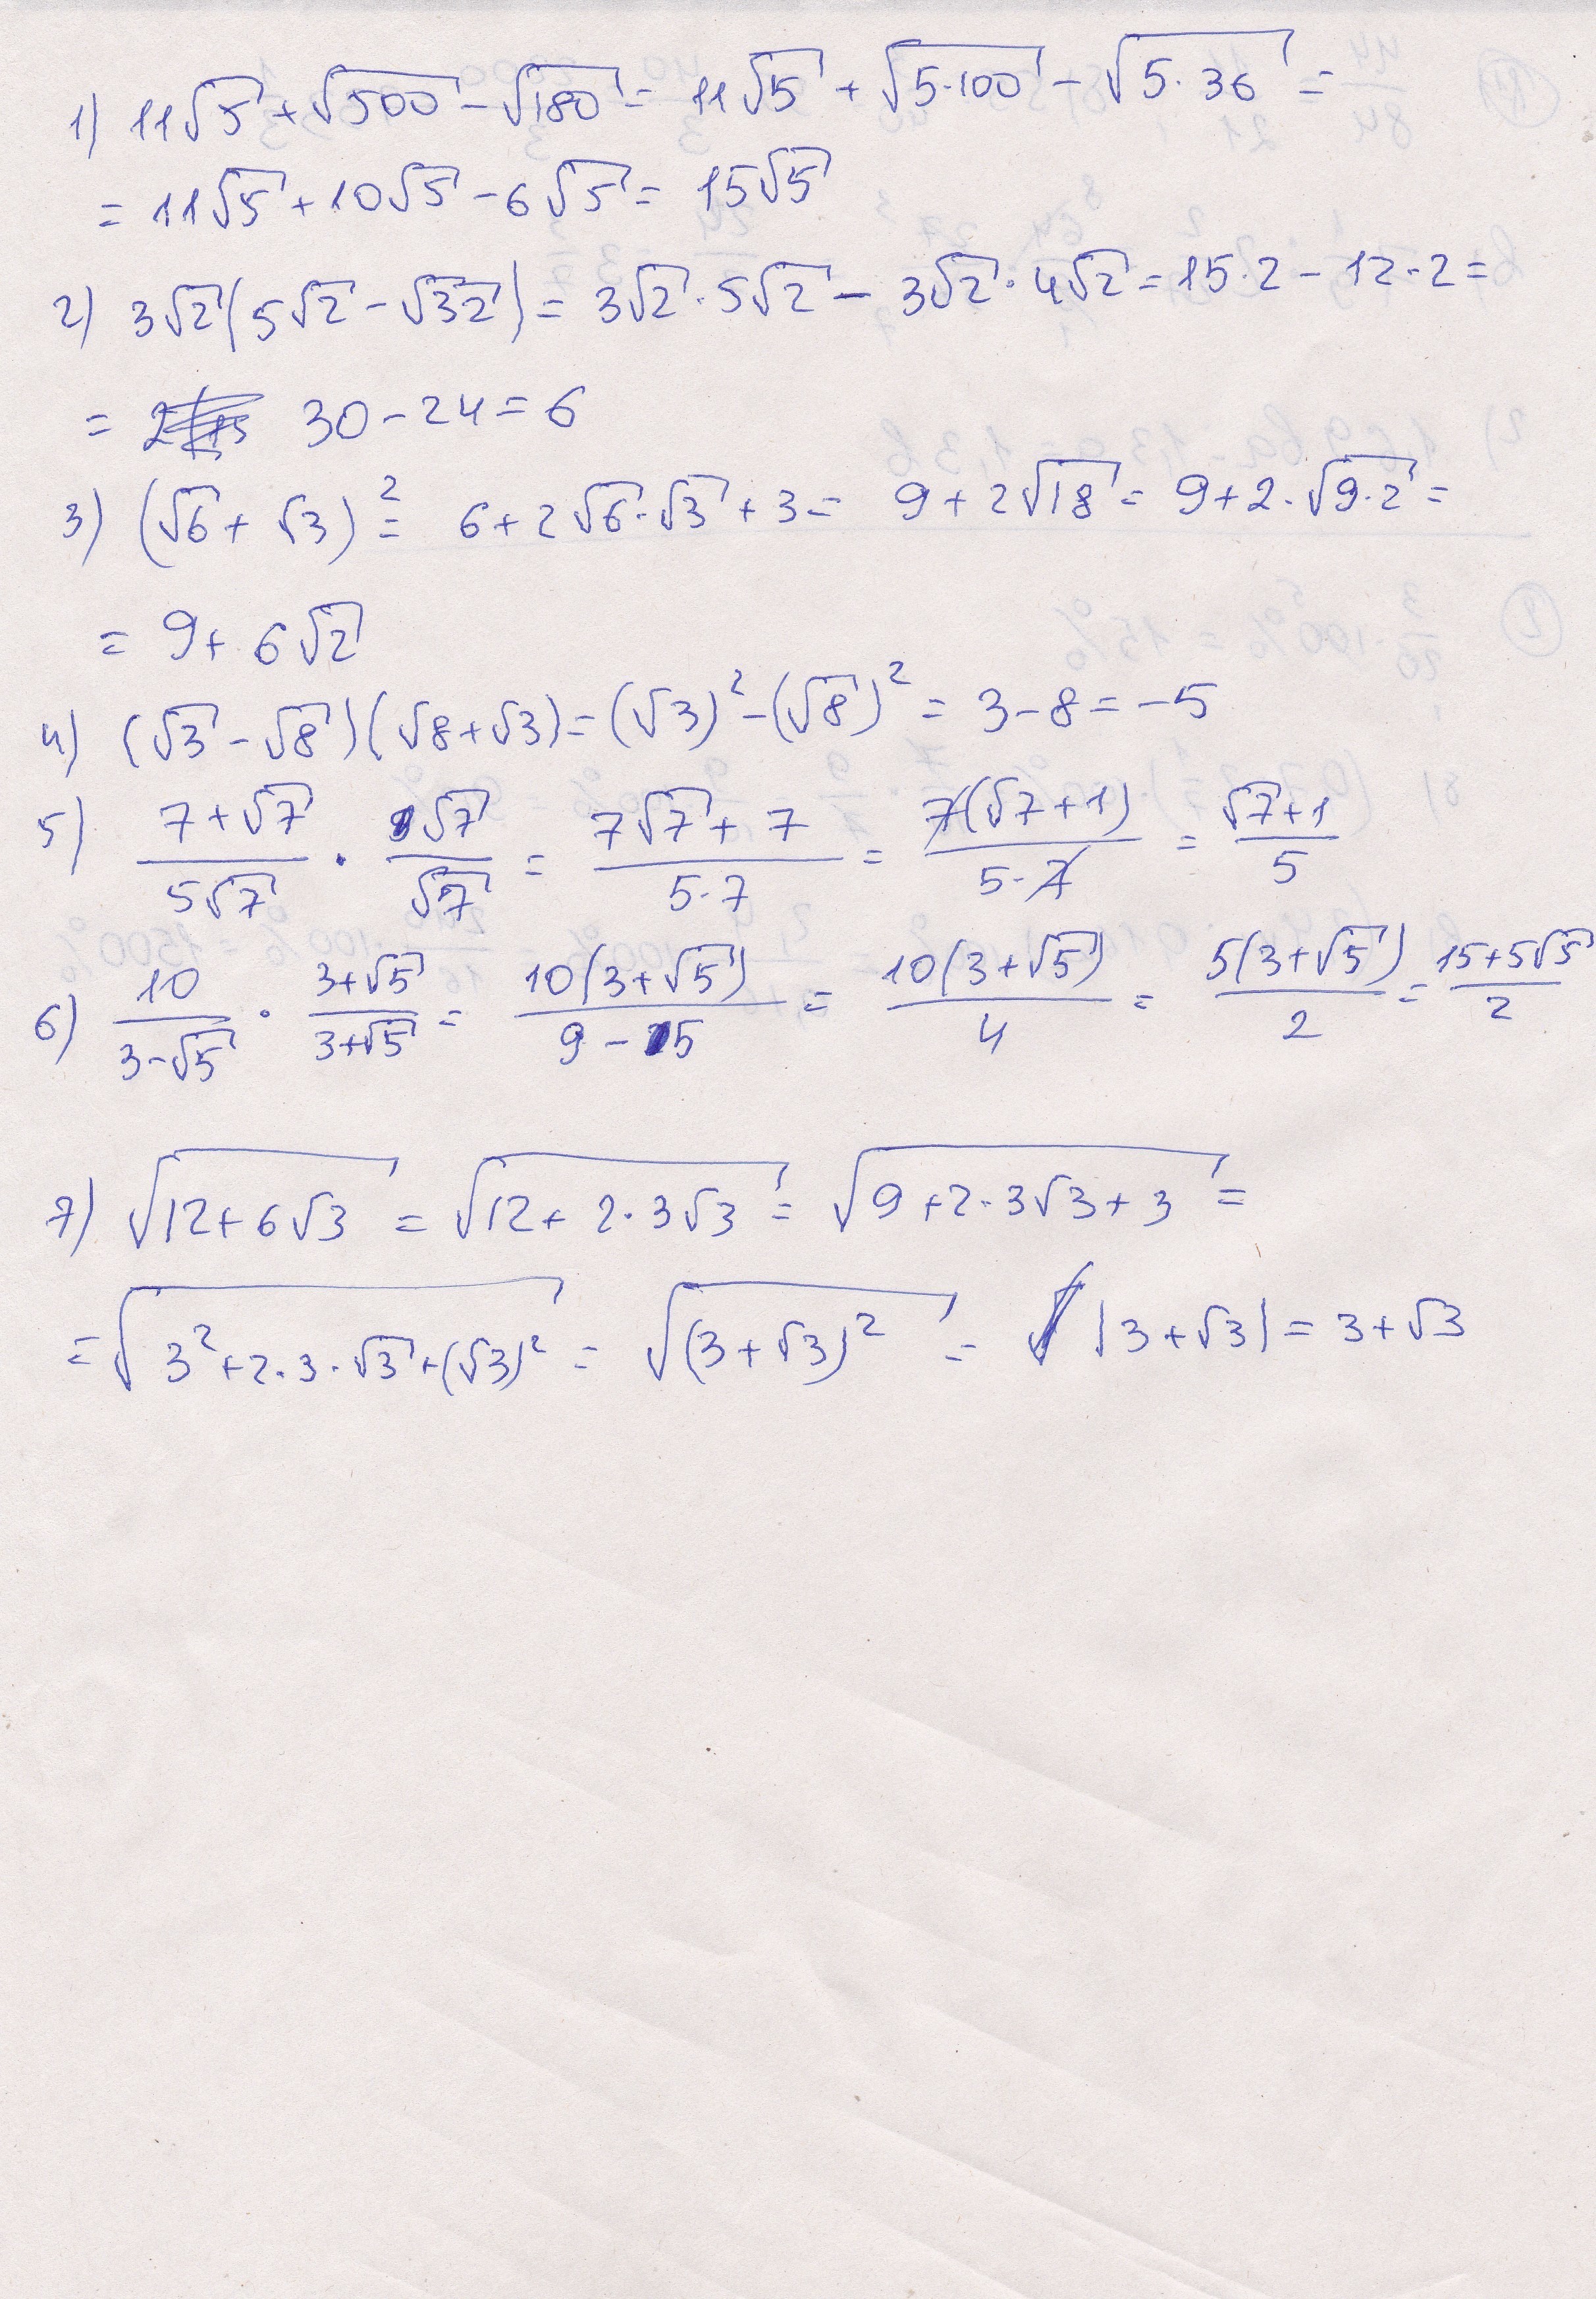 1) 11√5 + √500 - √180 = 11√5 + √5·100 - √5·36 =
= 11√5 + 10√5 - 6√5 = 15√5
2) 3√2(5√2 - √32) = 3√2·5√2 - 3√2·4√2 = 15·2 - 12·2 =
= 30 - 24 = 6
3) (√6 + √3)² = 6 + 2√6·√3 + 3 = 9 + 2√18 = 9 + 2·√9·2 =
= 9 + 6√2
4) (√3 - √8)(√8 + √3) = (√3)² - (√8)² = 3 - 8 = -5
5) (7 + √7)/(5√7) · √7/√7 = (7√7 + 7)/(5·7) = 7(√7 + 1)/(5·7) = (√7 + 1)/5
6) 10/(3 - √5) · (3 + √5)/(3 + √5) = 10(3 + √5)/(9 - 5) = 10(3 + √5)/4 = 5(3 + √5)/2 = (15 + 5√5)/2
7) √(12 + 6√3) = √(12 + 2·3√3) = √(9 + 2·3√3 + 3) =
= √(3² + 2·3·√3 + (√3)²) = √((3 + √3)²) = |3 + √3| = 3 + √3